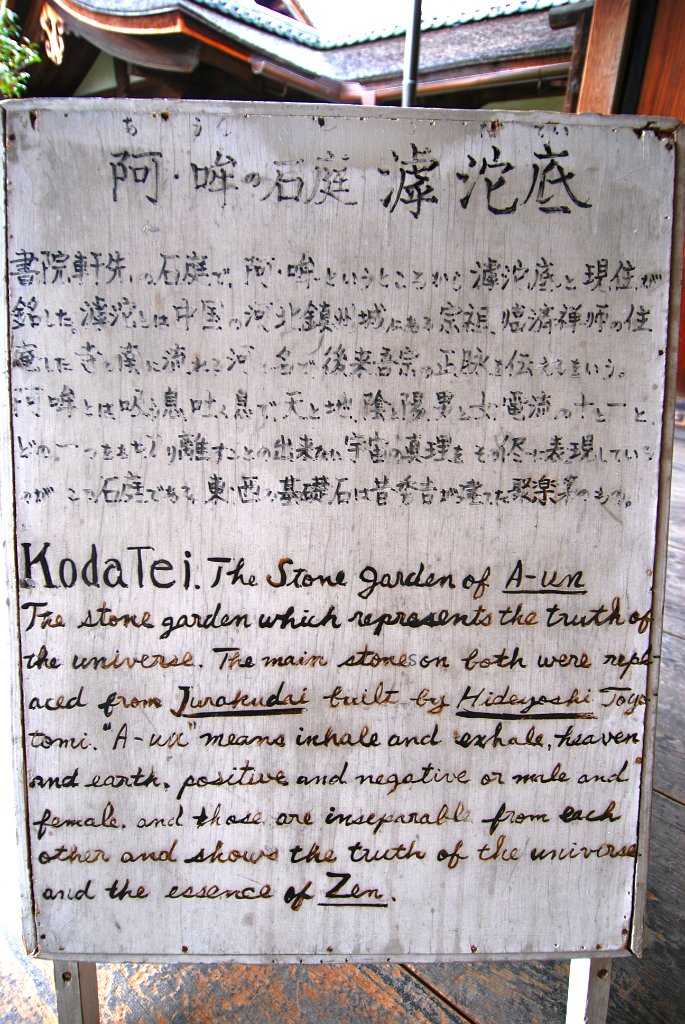 阿・吽の石庭 滹沱底
書院軒先の石庭で、阿・吽というところから滹沱底と現住が
銘した。滹沱とは中国の河北鎮州城にある宗祖臨済禅師の住
した寺と南に流れる河の名で後来吾宗の正脈を伝えるをいう。
阿吽とは吸う息吐く息で、天と地、陰と陽、男と女、電流の十と一と
どの一つをも切り離すことの出来ない宇宙の真理をその侭に表現している
のがこの石庭である。東・西の基礎石は昔秀吉が建てた聚楽第のもの。
KodaTei. The Stone garden of A-un
The stone garden which represents the truth of
the universe. The main stones on both were repl-
aced from Jurakudai built by Hideyoshi Toyo-
tomi. "A-un" means inhale and exhale, heaven
and earth, positive and negative or male and
female. and those are inseparable from each
other and shows the truth of the universe
and the essence of Zen.